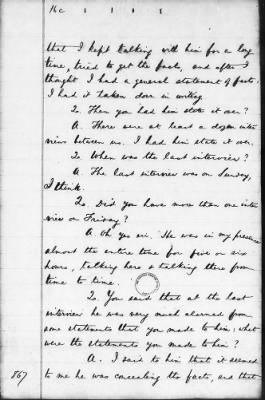 16c 1 1 1 1
that I kept talking with him for a long
time, tried to get the facts, and after I
thought I had a general statement of facts.
I had it taken down in writing
Q. Then you had him state it over?
A. There were at least a dozen inter
views between us. I had him state it over.
Q. When was the last interview?
A. The last interview was on Sunday,
I think.
Q. Did you have more than one inter
view on Friday?
A. Oh yes sir. He was in my presence
almost the entire time for five or six
hours, talking here & talking there from
time to time.
Q. You said that at the last
interview he was very much alarmed from
some statements that you made to him: what
were the statements you made to him?
A. I said to him that it seemed
to me he was concealing the facts, and that
867